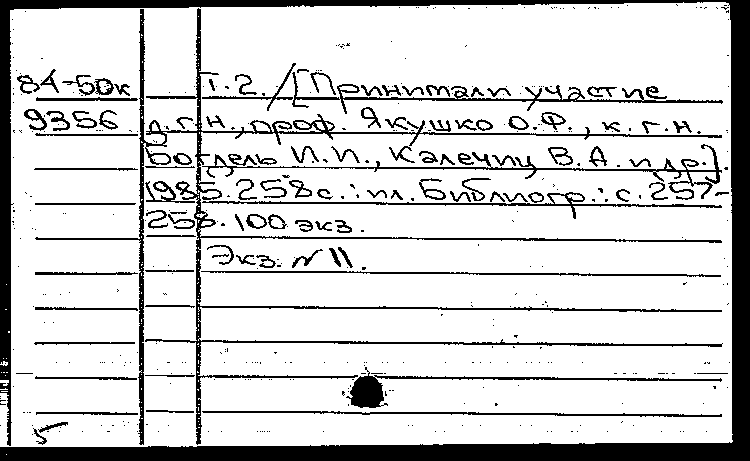 84-50к Т.2. / [Принимали участие
9356 д.г.н., проф. Якушко О.Ф., к.г.н.
Богдель И.И., Калечиц В.А. и др.].
1985. 258 с.: ил. Библиогр.: с. 257-
258. 100 экз.
Экз. N 11.
5